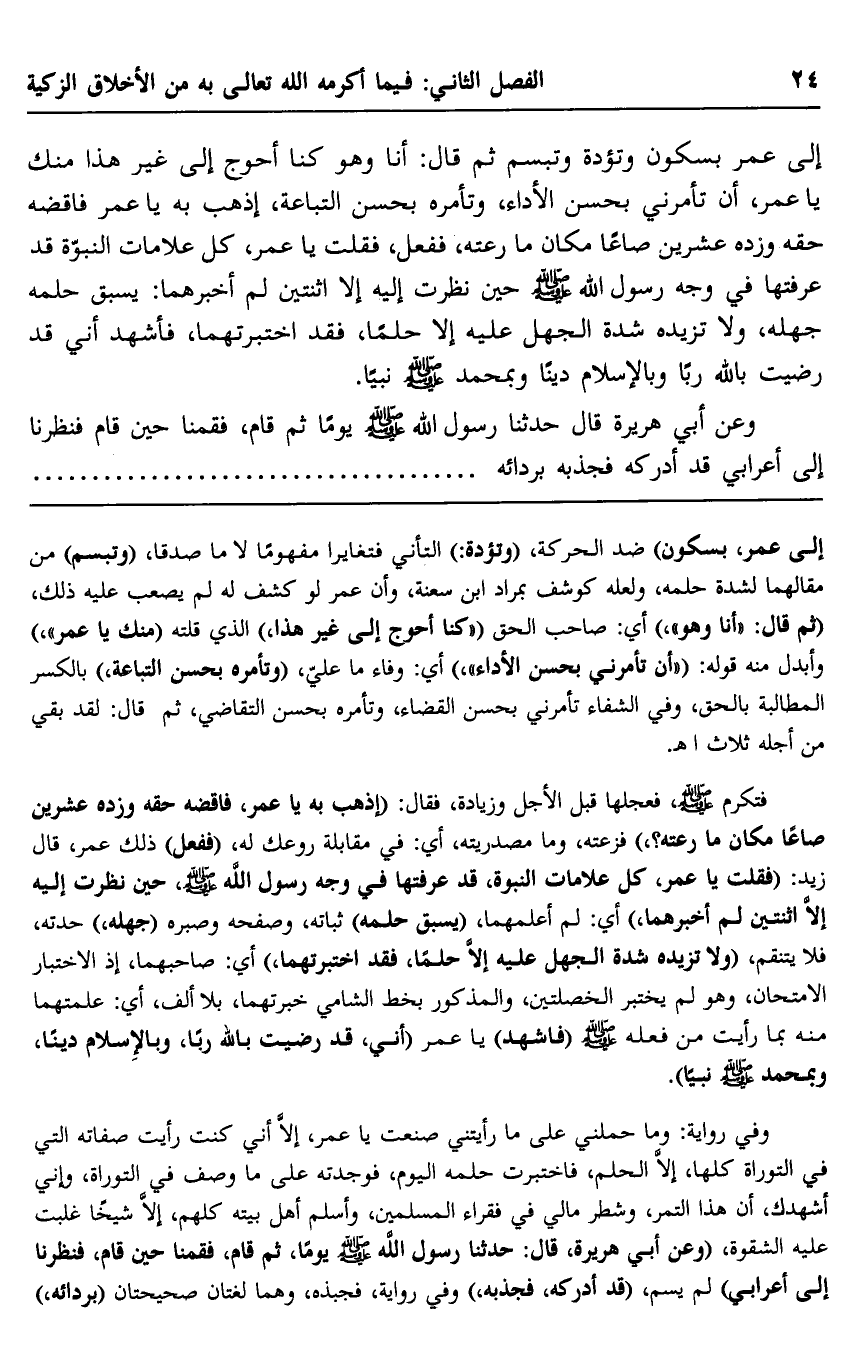 ٢٤ الفصل الثاني: فيما أكرمه الله تعالى به من الأخلاق الزكية
إلى عمر بسكون وتؤدة وتبسم ثم قال: أنا وهو كنا أحوج إلى غير هذا منك
يا عمر، أن تأمرني بحسن الأداء، وتأمره بحسن التباعة، إذهب به يا عمر فاقضه
حقه وزده عشرين صاعًا مكان ما رعته، ففعل، فقلت يا عمر، كل علامات النبوّة قد
عرفتها في وجه رسول الله ﷺ حين نظرت إليه إلا اثنتين لم أخبرهما: يسبق حلمه
جهله، ولا تزيده شدة الجهل عليه إلا حلمًا، فقد اختبرتهما، فأشهد أني قد
رضيت بالله ربًا وبالإسلام دينًا وبمحمد ﷺ نبيًا.
وعن أبي هريرة قال حدثنا رسول الله ﷺ يومًا ثم قام، فقمنا حين قام فنظرنا
إلى أعرابي قد أدركه فجذبه بردائه .....................................
إلى عمر، بسكون) ضد الحركة، (وتؤدة:) التأني فتغايرا مفهومًا لا ما صدقا، (وتبسم) من
مقالهما لشدة حلمه، ولعله كوشف بمراد ابن سعنة، وأن عمر لو كشف له لم يصعب عليه ذلك،
(ثم قال: «أنا وهو»،) أي: صاحب الحق («كنا أحوج إلى غير هذا،) الذي قلته (منك يا عمر»،)
وأبدل منه قوله: («أن تأمرني بحسن الأداء»،) أي: وفاء ما عليّ، (وتأمره بحسن التباعة،) بالكسر
المطالبة بالحق، وفي الشفاء تأمرني بحسن القضاء، وتأمره بحسن التقاضي، ثم قال: لقد بقي
من أجله ثلاث ا هـ.
فتكرم ﷺ، فعجلها قبل الأجل وزيادة، فقال: (إذهب به يا عمر، فاقضه حقه وزده عشرين
صاعًا مكان ما رعته؟،) فزعته، وما مصدريته، أي: في مقابلة روعك له، (ففعل) ذلك عمر، قال
زيد: (فقلت يا عمر، كل علامات النبوة، قد عرفتها في وجه رسول اللَّه ﷺ، حين نظرت إليه
إلاَّ اثنتين لم أخبرهما،) أي: لم أعلمهما، (يسبق حلمه) ثباته، وصفحه وصبره (جهله،) حدته،
فلا يتنقم، (ولا تزيده شدة الجهل عليه إلاَّ حلمًا، فقد اختبرتهما،) أي: صاحبهما، إذ الاختبار
الامتحان، وهو لم يختبر الخصلتين، والمذكور بخط الشامي خبرتهما، بلا ألف، أي: علمتهما
منه بما رأيت من فعله ﷺ (فاشهد) يا عمر (أني، قد رضيت بالله ربًا، وبالإِسلام دينًا،
وبمحمد ﷺ نبيًا).
وفي رواية: وما حملني على ما رأيتني صنعت يا عمر، إلاَّ أني كنت رأيت صفاته التي
في التوراة كلها، إلاَّ الحلم، فاختبرت حلمه اليوم، فوجدته على ما وصف في التوراة، وإني
أشهدك، أن هذا التمر، وشطر مالي في فقراء المسلمين، وأسلم أهل بيته كلهم، إلاَّ شيخًا غلبت
عليه الشقوة، (وعن أبي هريرة، قال: حدثنا رسول اللَّه ﷺ يومًا، ثم قام، فقمنا حين قام، فنظرنا
إلى أعرابي) لم يسم، (قد أدركه، فجذبه،) وفي رواية، فجبذه، وهما لغتان صحيحتان (بردائه،)